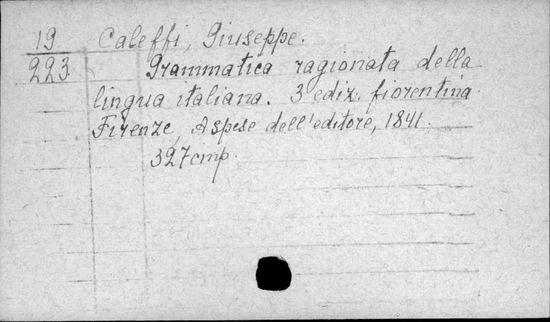 19 Caleffi, Giuseppe.
223. Grammatica ragionata della
lingua italiana. 3 ediz. fiorentina.
Firenze, A spese dell'editore, 1841.
327 cmp.